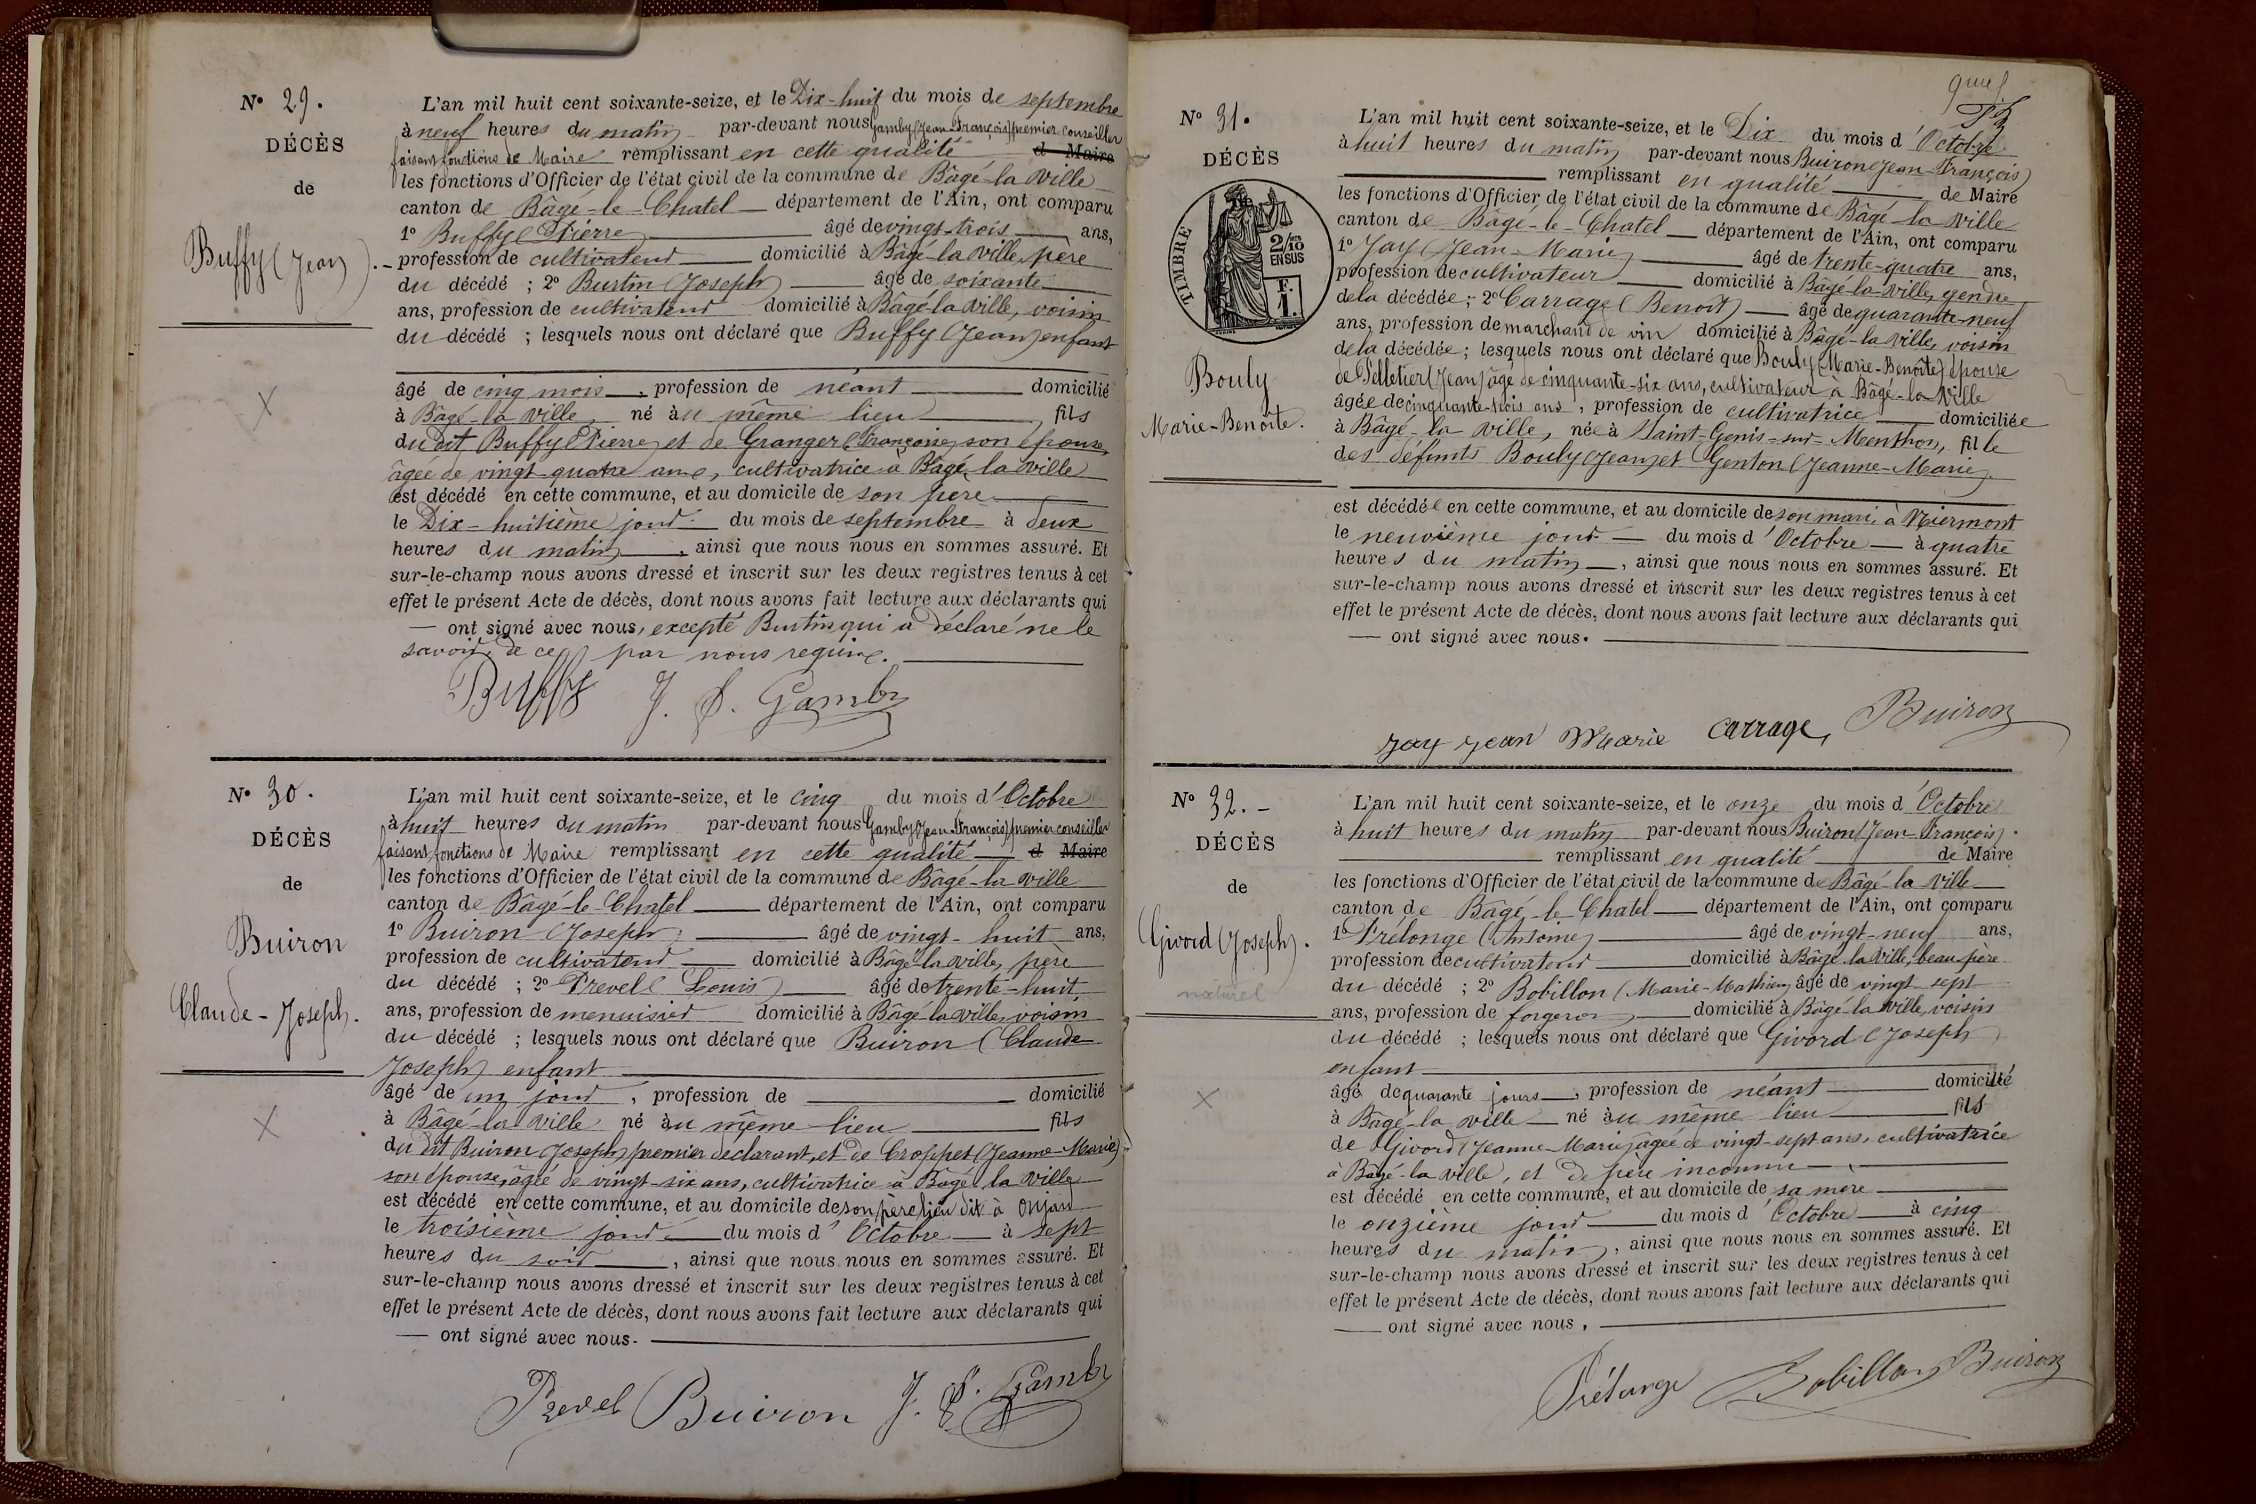 N° 29.
DÉCÈS
de
Buffy (Jean).
L'an mil huit cent soixante-seize, et le Dix-huit du mois de septembre
à neuf heures du matin par-devant nous Gamby (Jean-François) premier conseiller
faisant fonctions de Maire remplissant en cette qualité d Maire
les fonctions d'Officier de l'état civil de la commune de Bâgé-la ville
canton de Bâgé-le-Chatel département de l'Ain, ont comparu
1° Buffy (Pierre) âgé de vingt-trois ans,
profession de cultivateur domicilié à Bâgé-la ville, père
du décédé ; 2° Burtin (Joseph) âgé de soixante
ans, profession de cultivateur domicilié à Bâgé-la ville, voisin
du décédé ; lesquels nous ont déclaré que Buffy (Jean) enfant
âgé de cinq mois, profession de néant domicilié
à Bâgé-la ville, né au même lieu, fils
du dit Buffy (Pierre) et de Granger (Françoise) son épouse,
âgée de vingt quatre ans, cultivatrice à Bâgé la ville
est décédé en cette commune, et au domicile de son père
le Dix-huitième jour du mois de septembre à deux
heures du matin, ainsi que nous nous en sommes assuré. Et
sur-le-champ nous avons dressé et inscrit sur les deux registres tenus à cet
effet le présent Acte de décès, dont nous avons fait lecture aux déclarants qui
— ont signé avec nous, excepté Burtin qui a déclaré ne le
savoir de ce par nous requis.
Buffy J. F. Gamby
N° 30.
DÉCÈS
de
Buiron
Claude-Joseph.
L'an mil huit cent soixante-seize, et le cinq du mois d'Octobre
à huit heures du matin par-devant nous Gamby (Jean-François) premier conseiller
faisant fonctions de Maire remplissant en cette qualité d Maire
les fonctions d'Officier de l'état civil de la commune de Bâgé-la ville
canton de Bâgé-le-Chatel département de l'Ain, ont comparu
1° Buiron (Joseph) âgé de vingt-huit ans,
profession de cultivateur domicilié à Bâgé la ville, père
du décédé ; 2° Prevel (Louis) âgé de trente-huit
ans, profession de menuisier domicilié à Bâgé-la ville, voisin
du décédé ; lesquels nous ont déclaré que Buiron (Claude
Joseph) enfant
âgé de un jour, profession de domicilié
à Bâgé-la ville né au même lieu fils
du dit Buiron (Joseph) premier déclarant, et de Croppet (Jeanne-Marie)
son épouse, âgée de vingt-six ans, cultivatrice à Bâgé la ville
est décédé en cette commune, et au domicile de son père lieu dit à Onjard
le troisième jour du mois d'Octobre à sept
heures du soir, ainsi que nous nous en sommes assuré. Et
sur-le-champ nous avons dressé et inscrit sur les deux registres tenus à cet
effet le présent Acte de décès, dont nous avons fait lecture aux déclarants qui
— ont signé avec nous.
Prevel Buiron J. F. Gamby
N° 31.
DÉCÈS
TIMBRE
2/10
EN SUS
F.
1.
Bouly
Marie-Benoîte.
L'an mil huit cent soixante-seize, et le Dix du mois d'Octobre
à huit heures du matin par-devant nous Buiron (Jean-François)
remplissant en qualité de Maire
les fonctions d'Officier de l'état civil de la commune de Bâgé-la ville
canton de Bâgé-le-Chatel département de l'Ain, ont comparu
1° Jay (Jean-Marie) âgé de trente-quatre ans,
profession de cultivateur domicilié à Bâgé-la ville, gendre
de la décédée ; 2° Carrage (Benoit) âgé de quarante-neuf
ans, profession de marchand de vin domicilié à Bâgé-la ville, voisin
de la décédée ; lesquels nous ont déclaré que Bouly (Marie-Benoîte) épouse
de Pelletier (Jean) âgé de cinquante-six ans, cultivateur à Bâgé-la-Ville
âgée de cinquante-trois ans, profession de cultivatrice domiciliée
à Bâgé-la ville, née à Saint-Genis-sur-Menthon, fille
des défunts Bouly (Jean) et Genton (Jeanne-Marie).
est décédée en cette commune, et au domicile de son mari à Niermont
le neuvième jour du mois d'Octobre à quatre
heures du matin, ainsi que nous nous en sommes assuré. Et
sur-le-champ nous avons dressé et inscrit sur les deux registres tenus à cet
effet le présent Acte de décès, dont nous avons fait lecture aux déclarants qui
— ont signé avec nous.
Jay Jean Marie Carrage, Buiron
N° 32.
DÉCÈS
de
Givord (Joseph).
naturel
L'an mil huit cent soixante-seize, et le onze du mois d'Octobre
à huit heures du matin par-devant nous Buiron (Jean-François).
remplissant en qualité de Maire
les fonctions d'Officier de l'état civil de la commune de Bâgé-la ville
canton de Bâgé-le-Chatel département de l'Ain, ont comparu
1° Prélonge (Antoine) âgé de vingt-neuf ans,
profession de cultivateur domicilié à Bâgé la Ville, beau père
du décédé ; 2° Bobillon (Marie-Mathieu) âgé de vingt sept
ans, profession de forgeron domicilié à Bâgé-la Ville, voisin
du décédé ; lesquels nous ont déclaré que Givord (Joseph)
enfant
âgé de quarante jours, profession de néant domicilié
à Bâgé-la ville né au même lieu fils
de Givord (Jeanne-Marie) âgée de vingt-sept ans, cultivatrice
à Bâgé-la ville, et de père inconnu
est décédé en cette commune, et au domicile de sa mère
le onzième jour du mois d'Octobre à cinq
heures du matin, ainsi que nous nous en sommes assuré. Et
sur-le-champ nous avons dressé et inscrit sur les deux registres tenus à cet
effet le présent Acte de décès, dont nous avons fait lecture aux déclarants qui
— ont signé avec nous.
Prélonge Bobillon Buiron